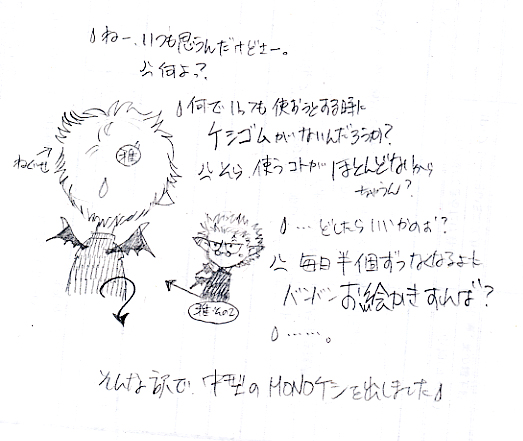 ♪ねー、いつも思うんだけどさー。
何よっ?
♪何でいつも使おうとする時に
ケシゴムがないんだろうか?
そら、使うコトがほとんどないから
ちゃうん?
雅
ねぐせ
♪…どしたらいいかのぉ?
毎日半個ずつなくなるよに
バンバンお絵かきすれば?
雅その2
♪……。
そんな訳で、中型のMONOケシを出しました♪